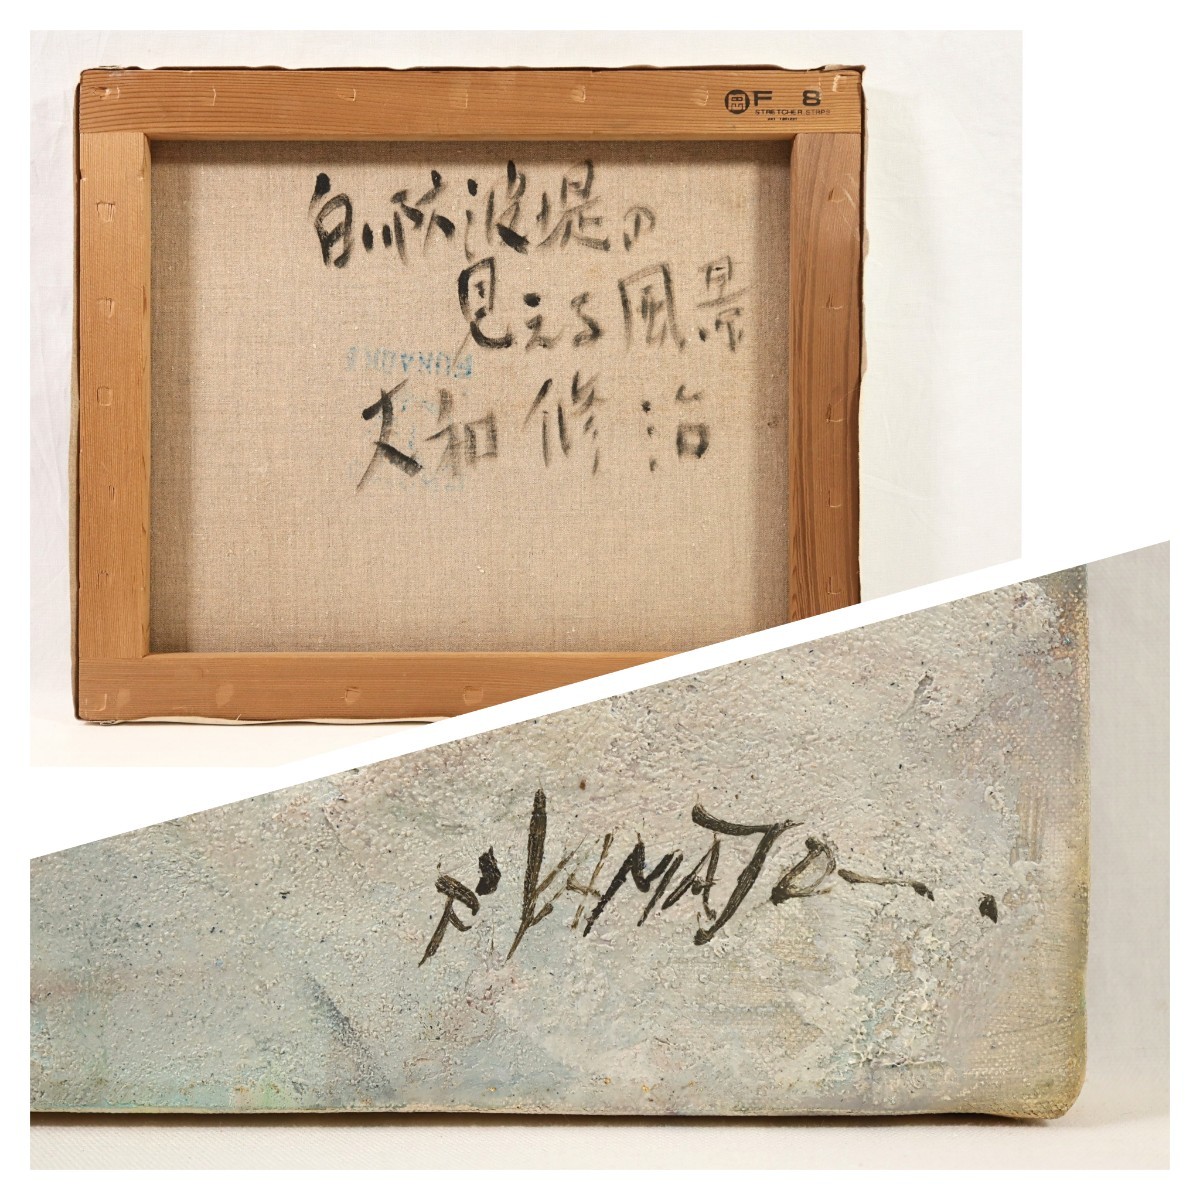 F 8
STRETCHER STRPS
白い防波堤の
見える風景
FUNAOKA
大和修治
YAMATO